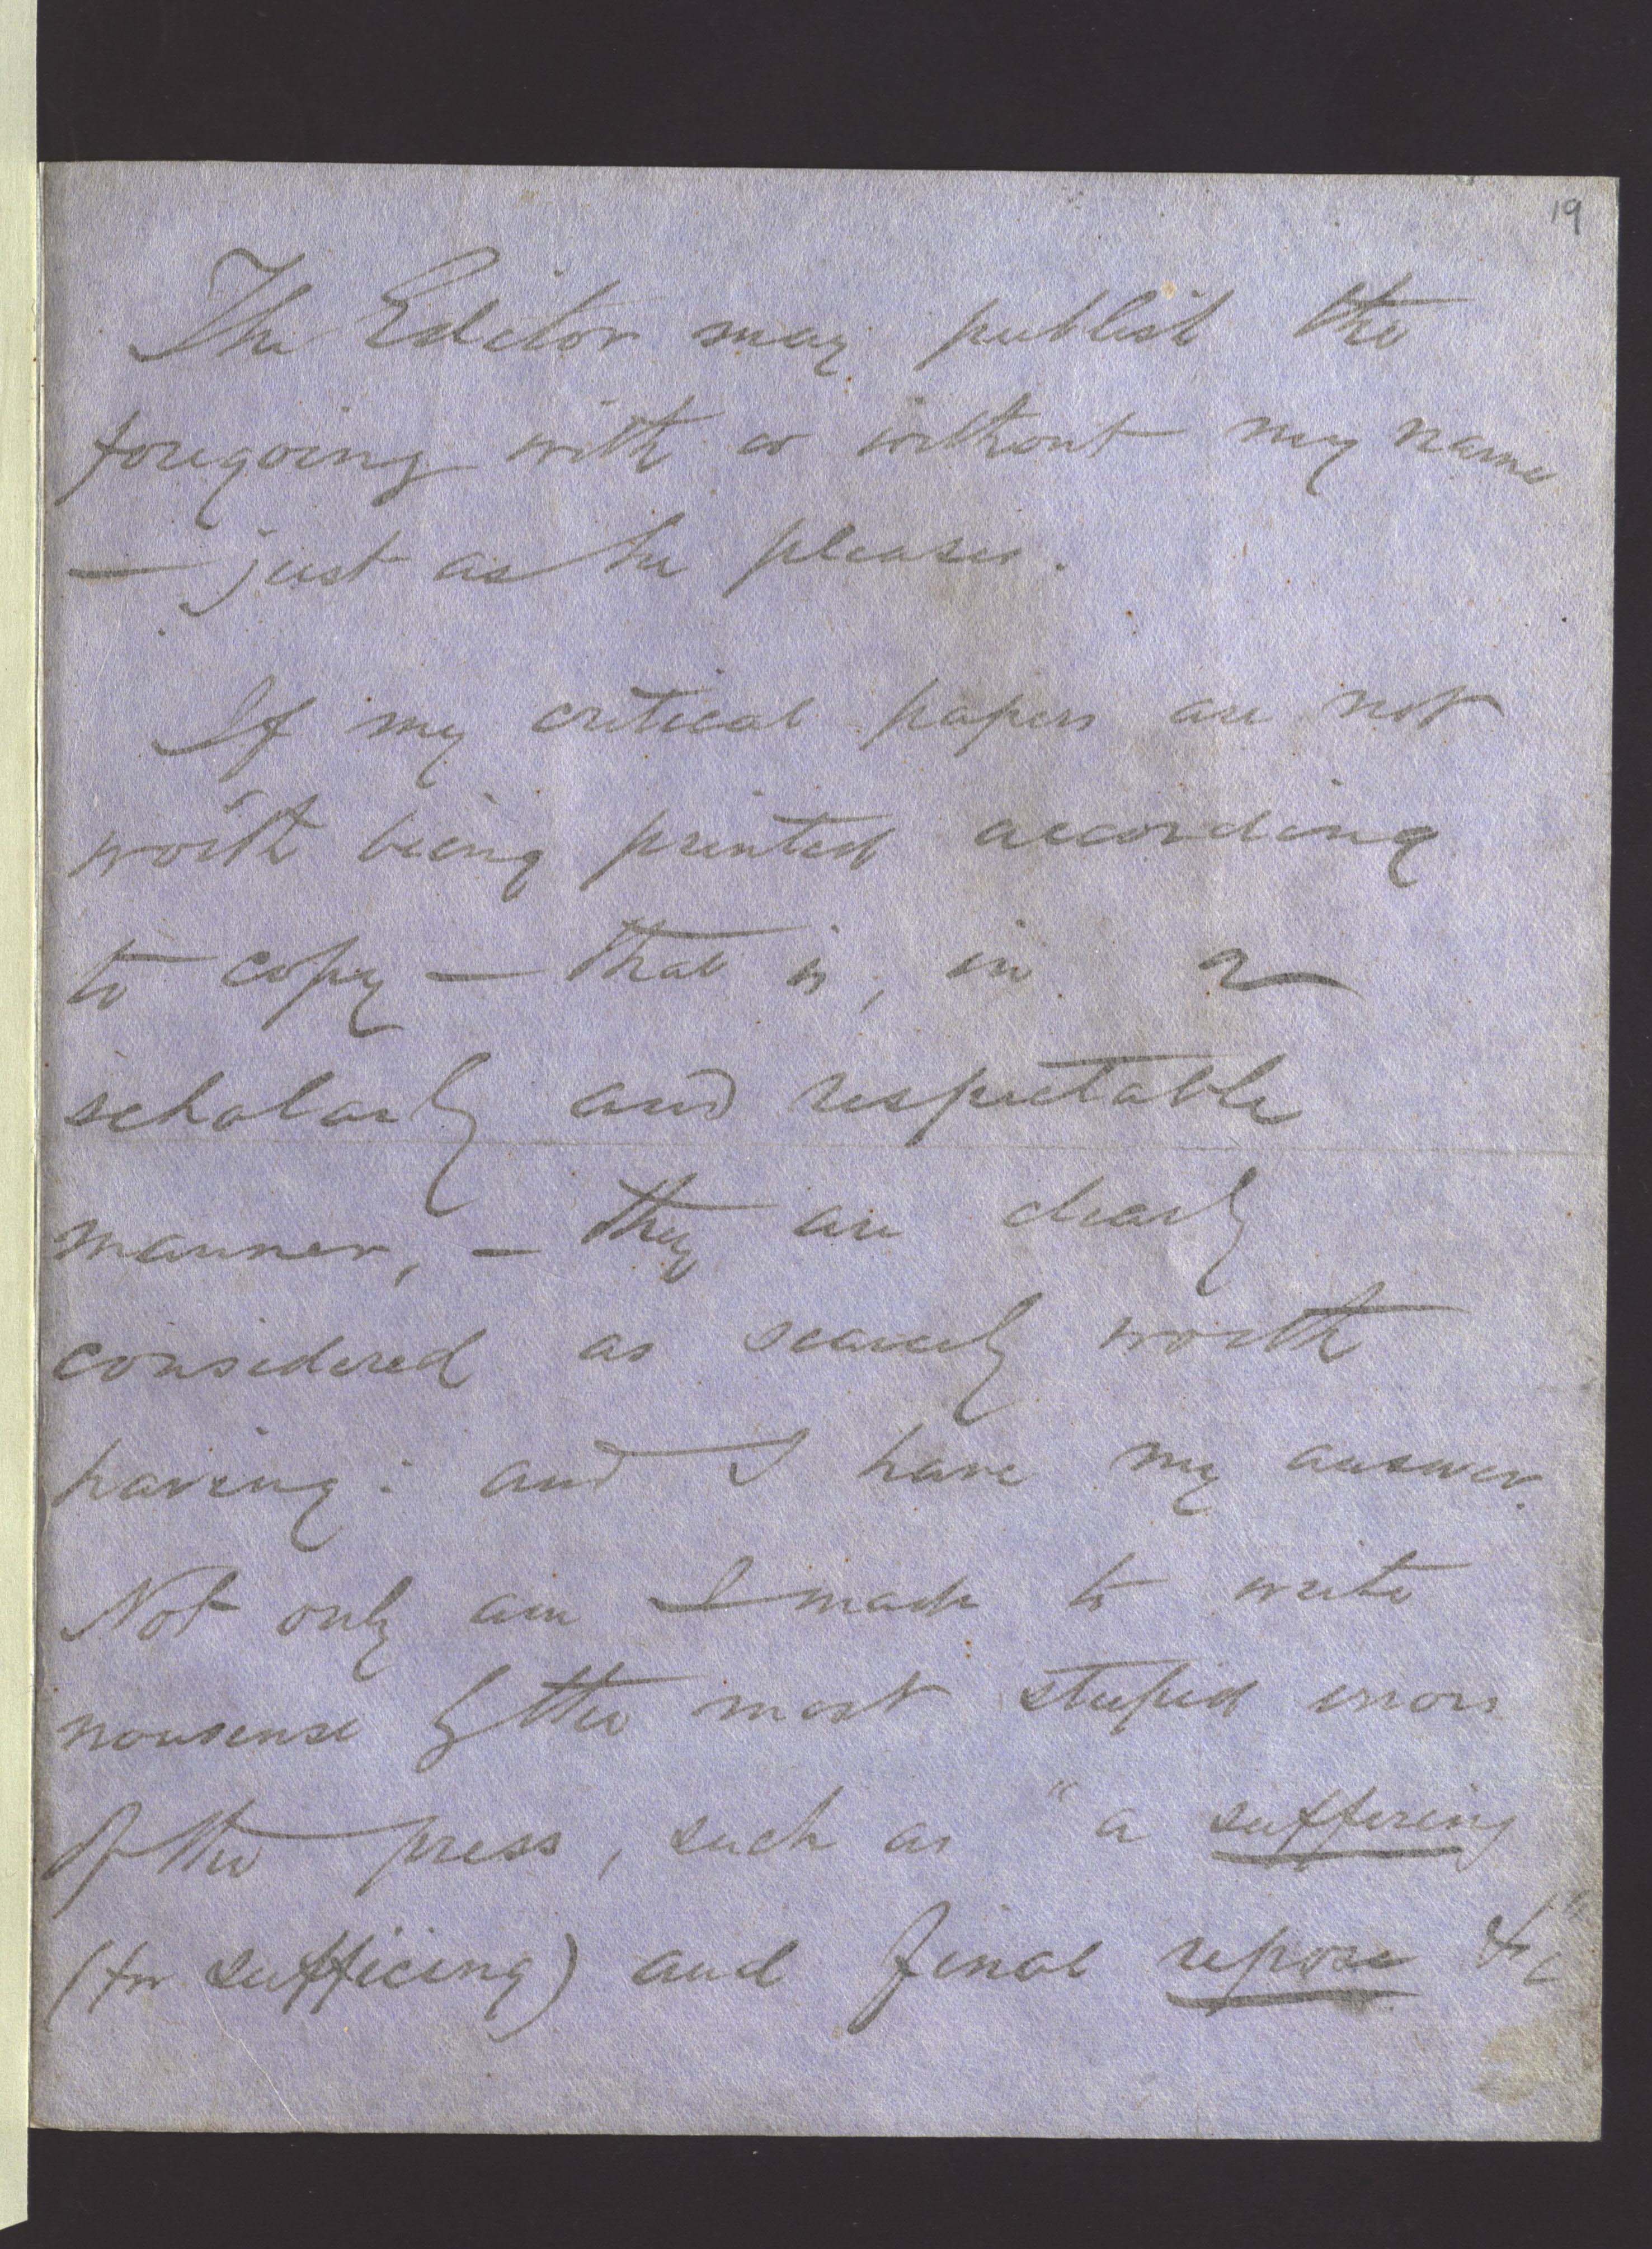 19
The Editor may publish the
foregoing with or without my name
— just as he pleases.
If my critical papers are not
worth being printed according
to copy — that is, in a
scholarly and respectable
manner, — they are clearly
considered as scarcely worth
having: and I have my answer.
Not only am I made to write
nonsense by the most stupid errors
of the press, such as "a suffering
(for sufficing) and final repose &c"